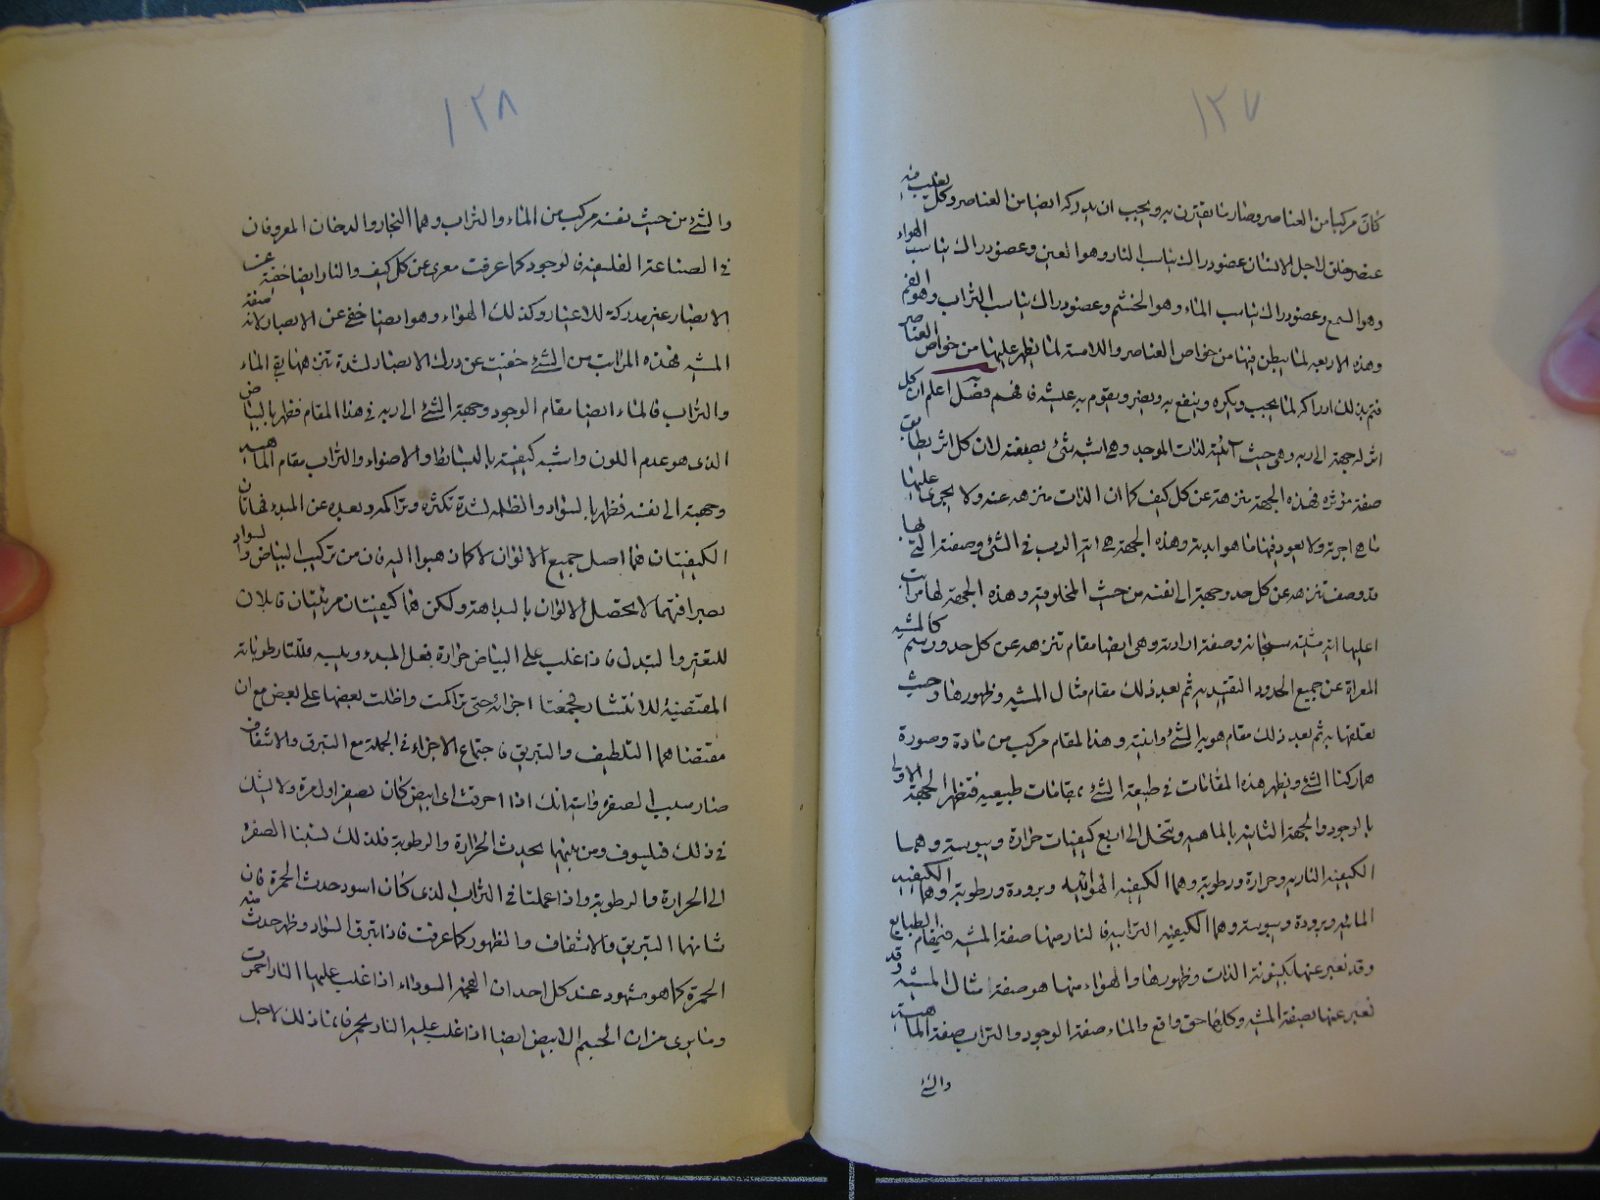 ١٢٧
كان مركبا من العناصر وصار ما يقترن به ويجب ان يدركه ايضا من العناصر وكل يغلب فيه
عنصر خلق لاجل الانسان عضو دراك يناسب النار وهو العين وعضو دراك يناسب الهواء
وهو السمع وعضو دراك يناسب الماء وهو الخشم وعضو دراك يناسب التراب وهو الفم
وهذه الاربعه لما يبطن فيها من خواص العناصر واللامسة لما يظهر عليها من خواص العناصر
فتم بذلك ادراكه لما يحب ويكره وينفع به ويضر ويقوم به عليه فافهم فصل اعلم ان كل
اثر له جهة الى ربه وهي حيث آئيته لذات الموجد وهي اشبه شئ بصفته لان كل اثر يطابق
صفة مؤثره فهذه الجهة منزهة عن كل كيف كما ان الذات منزهة عنه ولا يجرى عليها
ما هي اجرته ولا يعود فيها ما هو ابدته وهذه الجهة هي اية الرب في الشئ وصفته التي بها
قد وصف تنزهه عن كل حد وجهة الى نفسه من حيث المخلوقية وهذه الجهة لها مراتب
اعليها اية مشيته سبحانه وصفة ارادته وهي ايضا مقام تنزهه عن كل حد ورسم كالمشية
المعراة عن جميع الحدود التقييدية ثم بعد ذلك مقام مثال المشية وظهورها وحيث
تعلقها به ثم بعد ذلك مقام هوية الشئ وانيته وهذا المقام مركب من مادة وصورة
هما ركنا الشئ ويظهر هذه المقامات في طبيعة الشئ بمقامات طبيعيه فتظهر الجهة الاولى
بالوجود والجهة الثانية بالماهيه وتنحل الى اربع كيفيات حرارة ويبوسة وهما
الكيفية النارية وحرارة ورطوبة وهما الكيفية الهوائيه وبرودة ورطوبة وهما الكيفية
المائيه وبرودة ويبوسة وهما الكيفيه الترابية فالنار منها صفة المشيه في مقام الطبايع
وقد نعبر عنها بكينونة الذات وظهورها والهواء منها هو صفة مثال المشية وقد
نعبر عنها بصفة المشيه وكلاهما حق واقع والماء صفة الوجود والتراب صفة الماهية
والشئ
١٢٨
والشئ من حيث نفسه مركب من الماء والتراب وهما البخار والدخان المعروفان
في الصناعة الفلسفية فالوجود كما عرفت معرى عن كل كيف والنار ايضا خفية عن
الابصار غير مدركة للاعتبار وكذلك الهواء وهو ايضا خفي عن الابصار لانه صفة
المشيه فهذه المراتب من الشئ خفيت عن درك الابصار لشدة تنزهها بقي الماء
والتراب فالماء ايضا مقام الوجود وجهة الشئ الى ربه في هذا المقام فظهر بالبياض
الذى هو عدم اللون واشبه كيفية بالبسائط والاضواء والتراب مقام الماهية
وجهته الى نفسه فظهر بالسواد والظلمه لشدة تكثره وتراكمه وبعده عن المبدء فهاتان
الكيفيتان هما اصل جميع الالوان لا كما ذهبوا اليه فان من تركيب البياض والسواد
بصرافتهما لا يحصل الالوان بالبداهة ولكن هما كيفيتان مرئيتان قابلان
للتغير والتبدل فاذا غلب على البياض حرارة بفعل المبدء ويبسه قللتا رطوباته
المقتضية للانتشار فجمعتا اجزائه حتى تراكمت واظلت بعضها على بعض مع ان
مقتضاهما التلطيف والتبريق فاجتماع الاجزاء في الجملة مع التبرق والاشفاف
صار سبب الصفره واية انك اذا احرقت اى ابيض كان يصفر اول مرة ولا يشك
في ذلك فيلسوف ومن بينهما يحدث الحرارة والرطوبة فلذلك نسبنا الصفره
الى الحرارة والرطوبة واذا عملتا في التراب الذى كان اسود حدث الحمرة فان
شانهما التبريق والاشفاف والظهور كما عرفت فاذا تبرق السواد وظهر حدث منه
الحمرة كما هو مشهود عند كل احد ان الفحمة السوداء اذا غلب عليها النار احمرت
وما يرى من ان الجسم الابيض ايضا اذا غلب عليه النار يحمر فانما ذلك لاجل